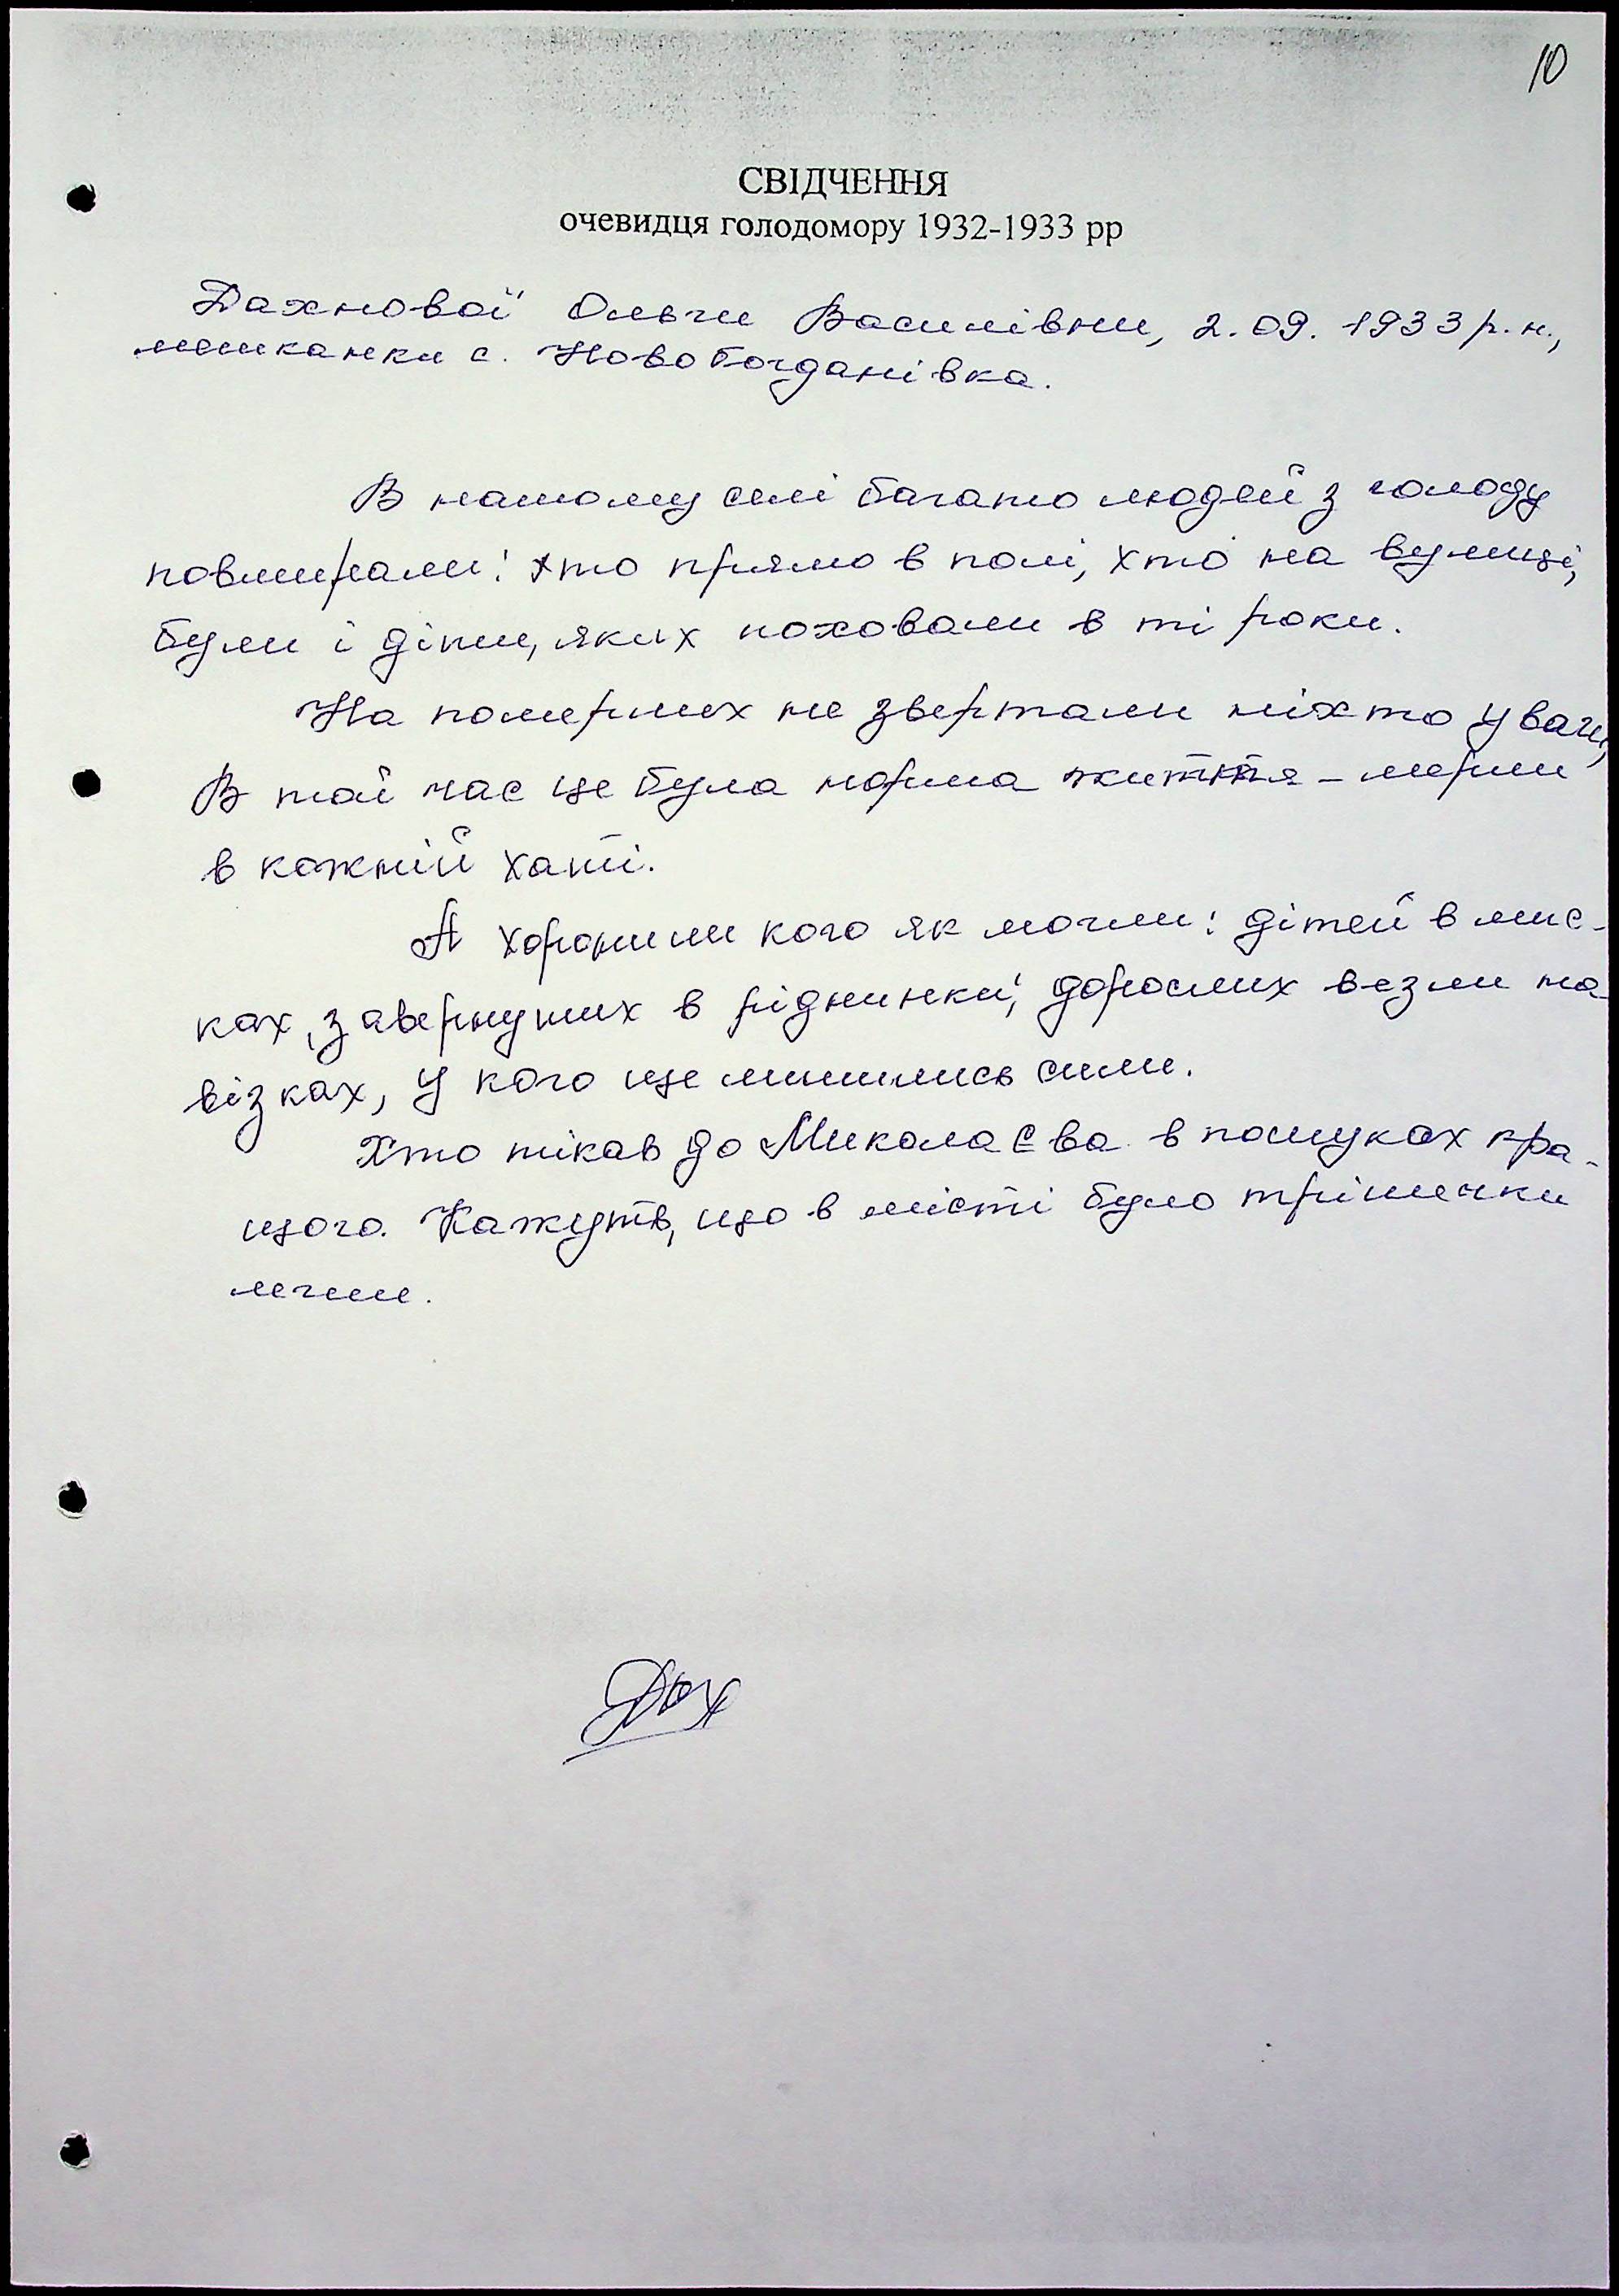 10
СВІДЧЕННЯ
очевидця голодомору 1932-1933 рр
Дахнової Ольги Василівни, 2.09.1933 р.н.,
мешканки с. Новобогданівка.
В нашому селі багато людей з голоду
повмирали: хто прямо в полі, хто на вулиці,
були і діти, яких поховали в ті роки.
На померших не звертали ніхто уваги,
В той час це була норма життя – мерли
в кожній хаті.
А хоронили кого як могли: дітей в мис-
ках, завернутих в ряднинки, дорослих везли на
візках, у кого ще лишились сили.
Хто тікав до Миколаєва в пошуках кра-
щого. Кажуть, що в місті було трішечки
легше.
Дах